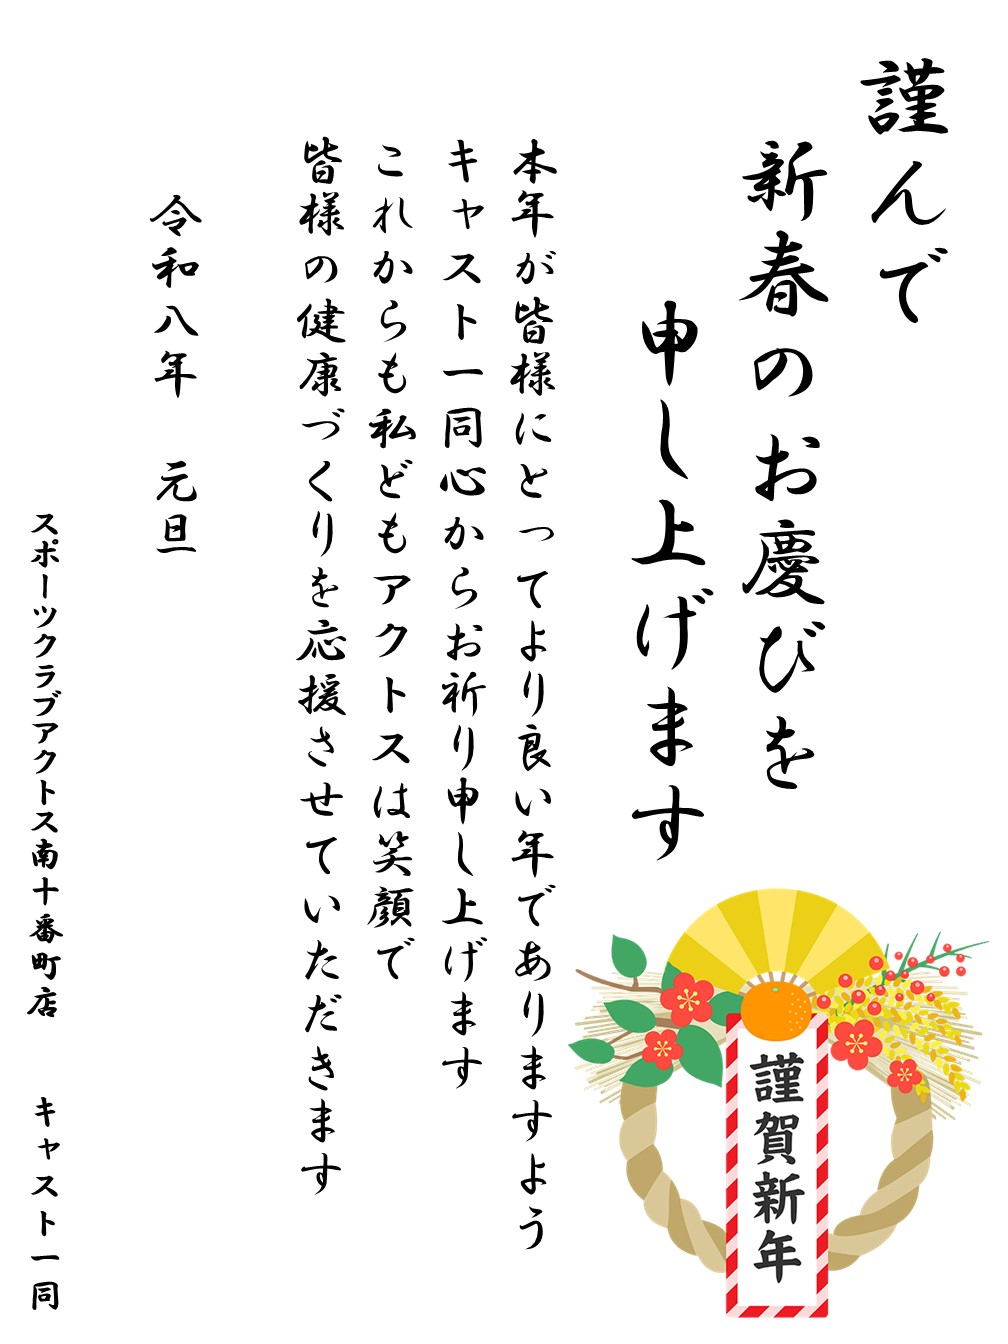 謹んで
新春のお慶びを
申し上げます
本年が皆様にとってより良い年でありますよう
キャスト一同心からお祈り申し上げます
これからも私どもアクトスは笑顔で
皆様の健康づくりを応援させていただきます
令和八年　元旦
スポーツクラブアクトス南十番町店　キャスト一同
謹賀新年